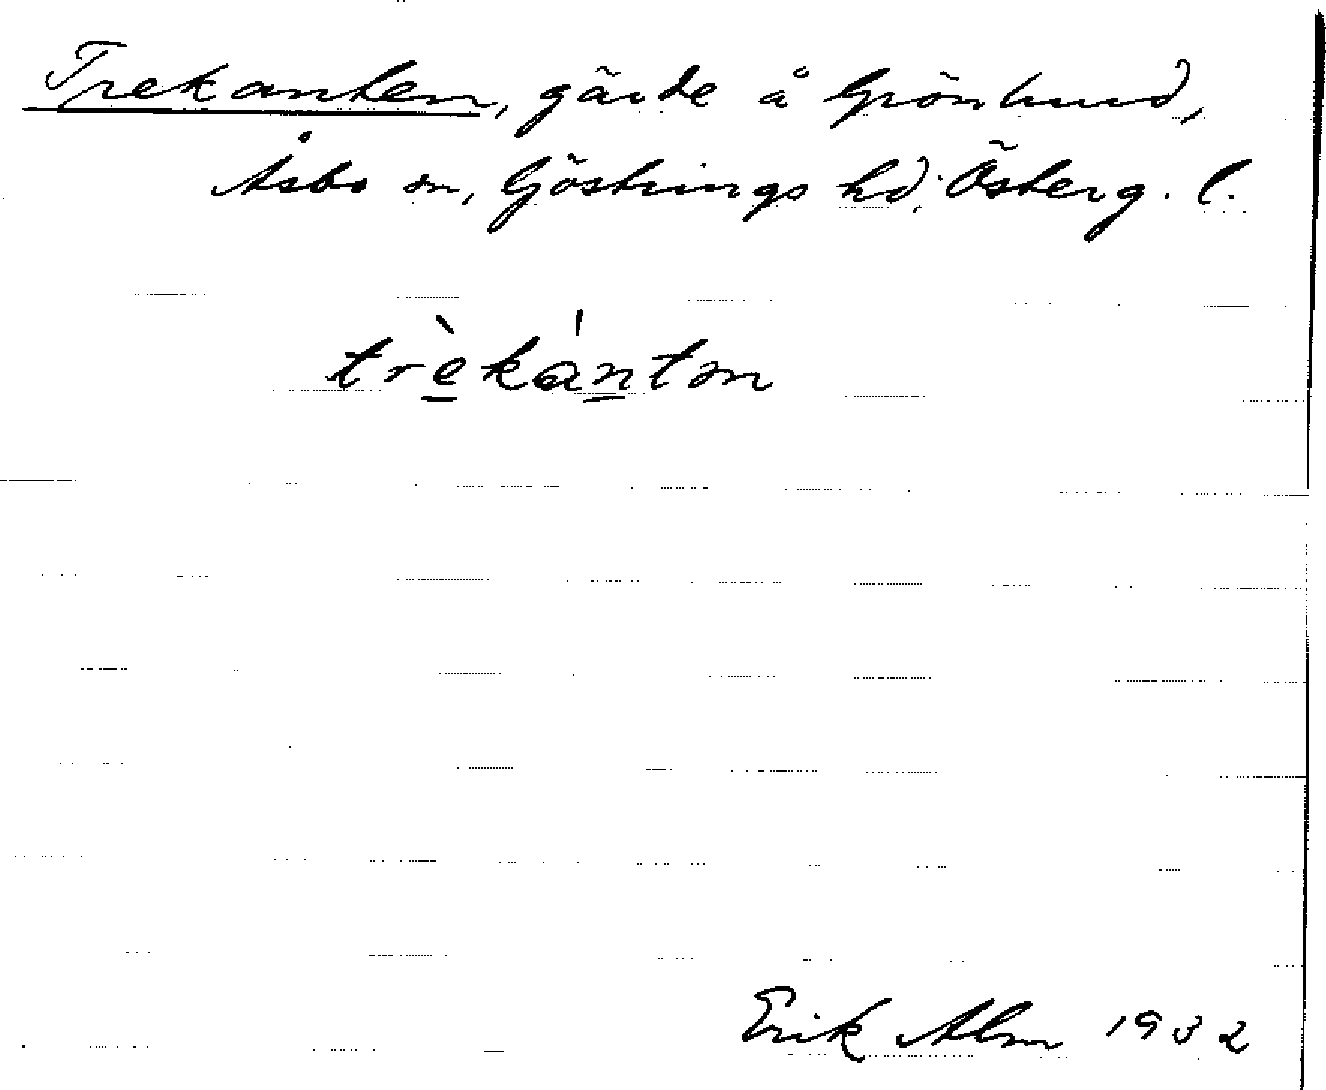 Trekanten, gärde å Grönlund,
Åsbo sn, Göstrings hd, Österg. l.
trèkánton
Erik Alm 1932